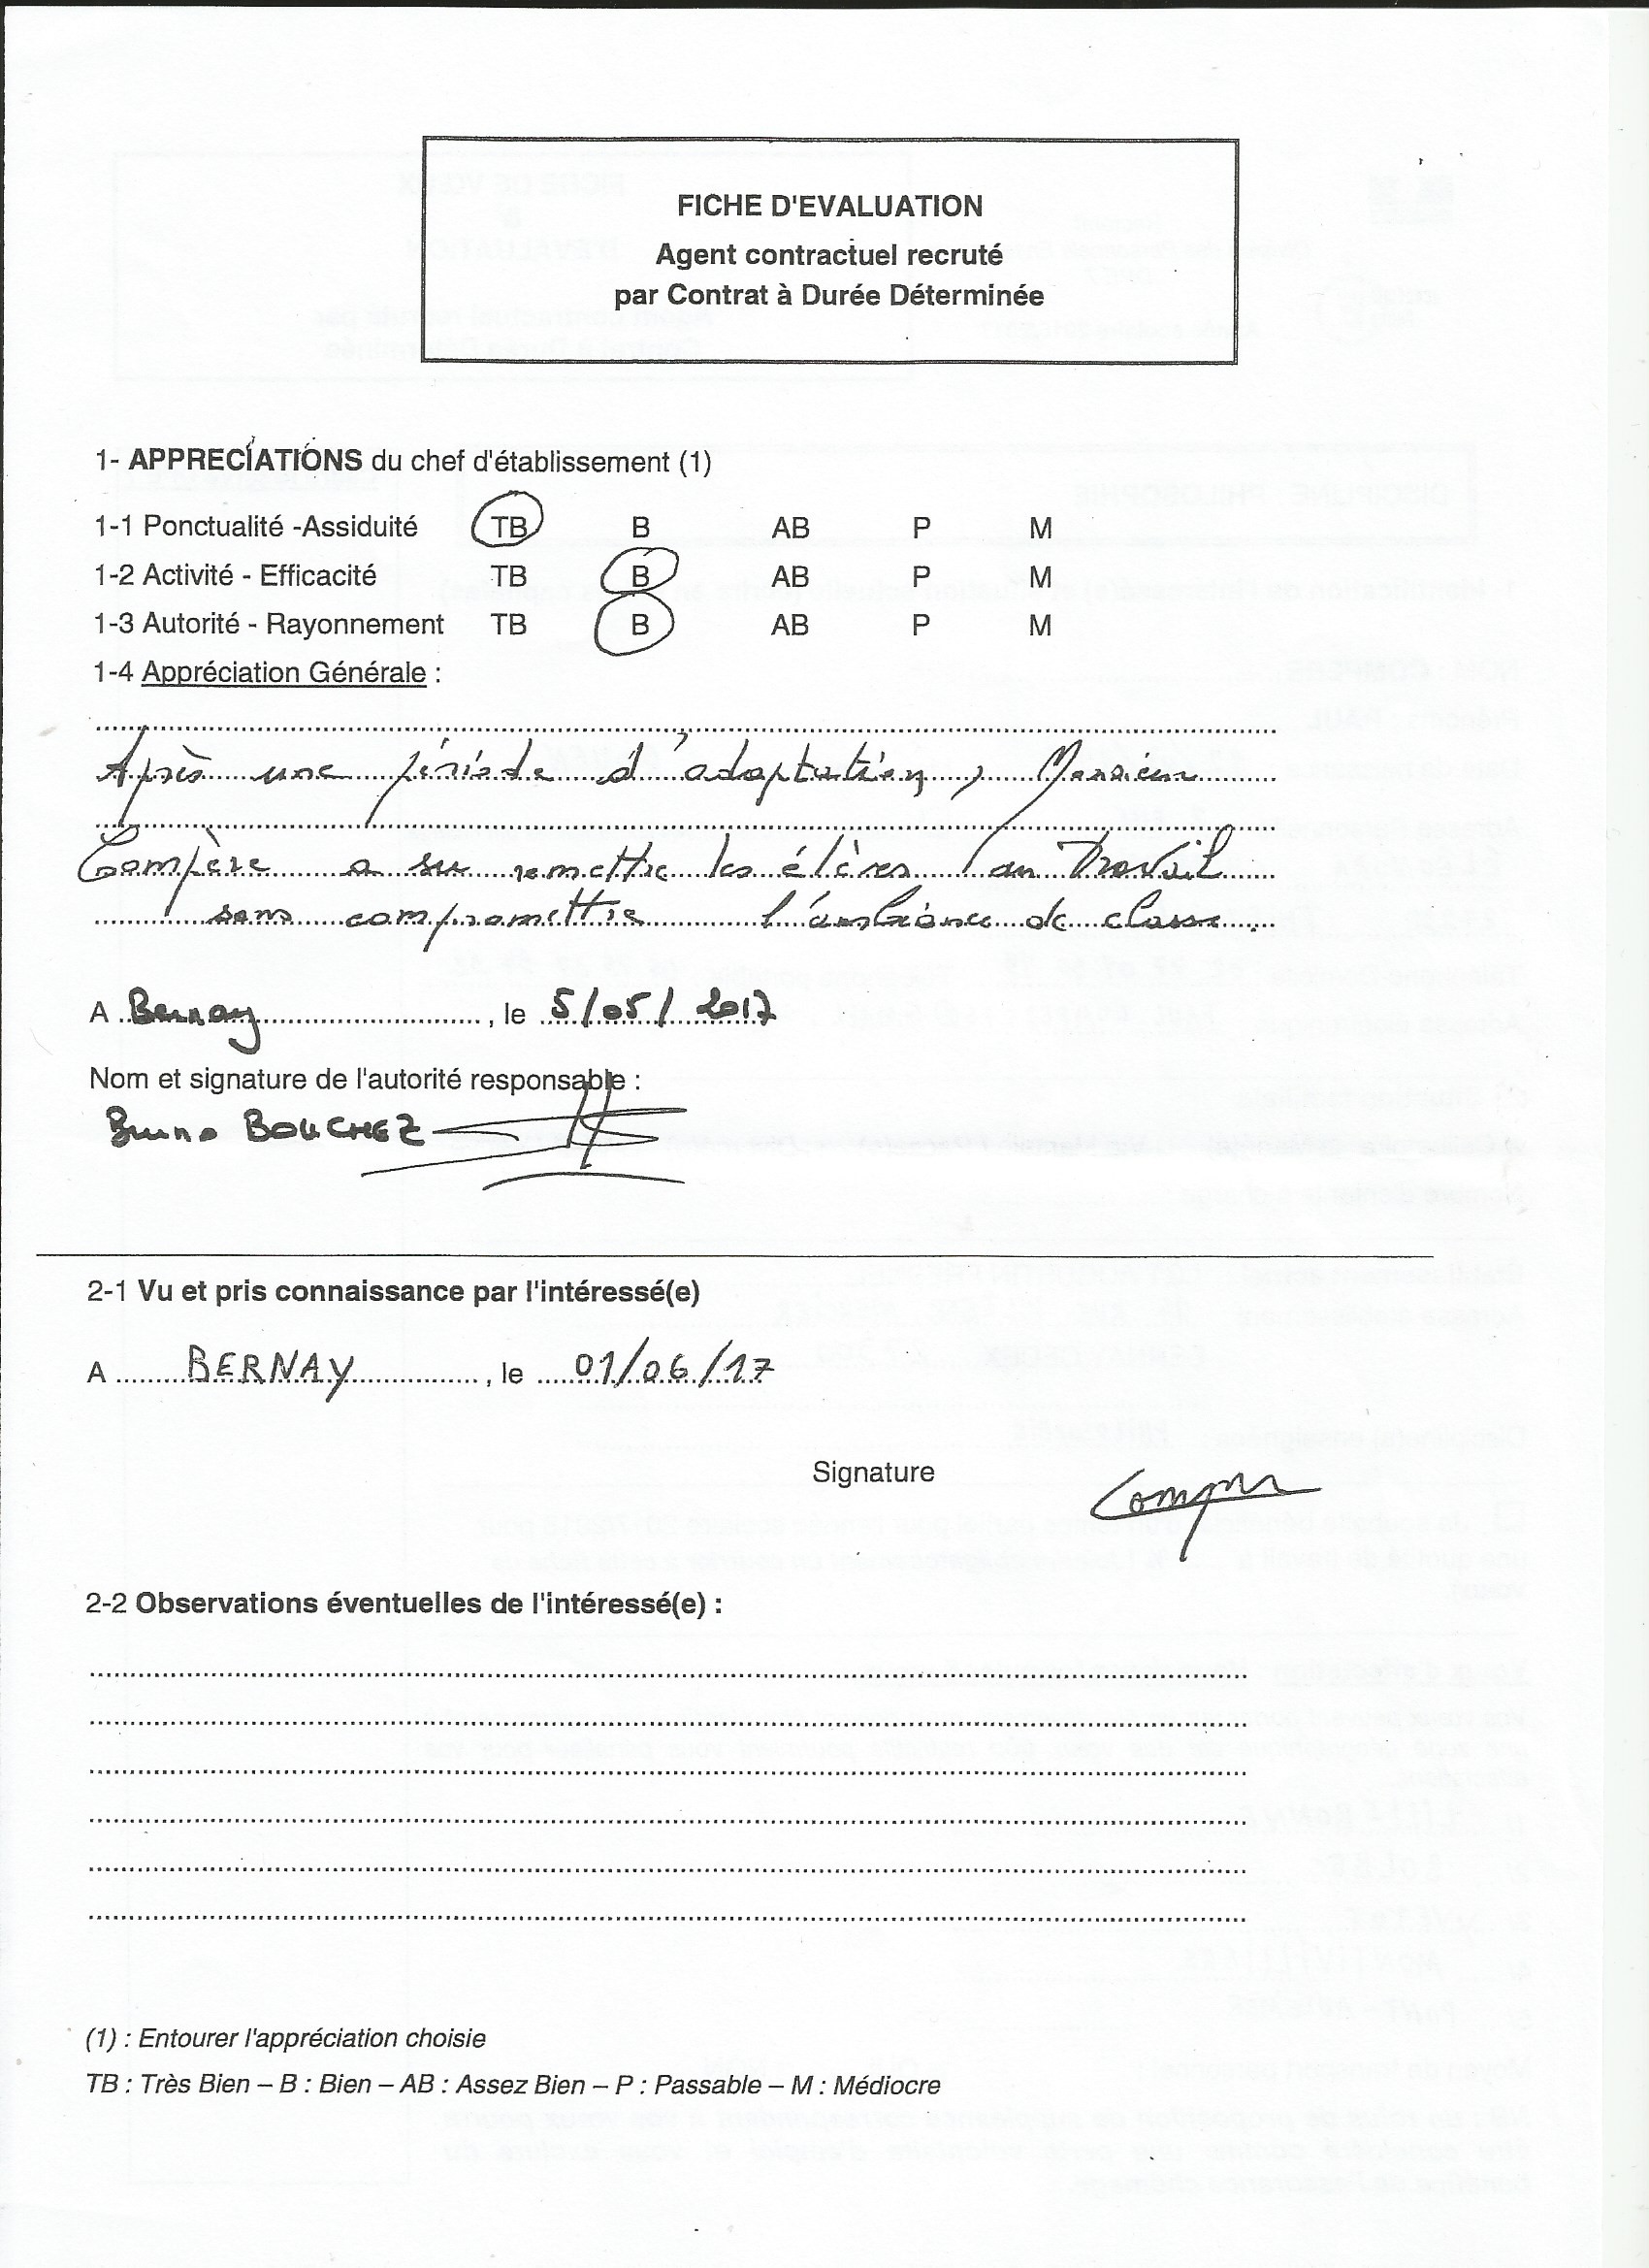 FICHE D'EVALUATION
Agent contractuel recruté
par Contrat à Durée Déterminée
1- APPRECIATIONS du chef d'établissement (1)
1-1 Ponctualité -Assiduité TB B AB P M
1-2 Activité - Efficacité TB B AB P M
1-3 Autorité - Rayonnement TB B AB P M
1-4 Appréciation Générale :
Après une période d'adaptation, Monsieur
Compère a su remettre les élèves au travail
sans compromettre l'ambiance de classe.
A Bernay, le 5/05/2017
Nom et signature de l'autorité responsable :
Bruno BOUCHEZ
2-1 Vu et pris connaissance par l'intéressé(e)
A BERNAY, le 01/06/17
Signature
2-2 Observations éventuelles de l'intéressé(e) :
(1) : Entourer l'appréciation choisie
TB : Très Bien – B : Bien – AB : Assez Bien – P : Passable – M : Médiocre